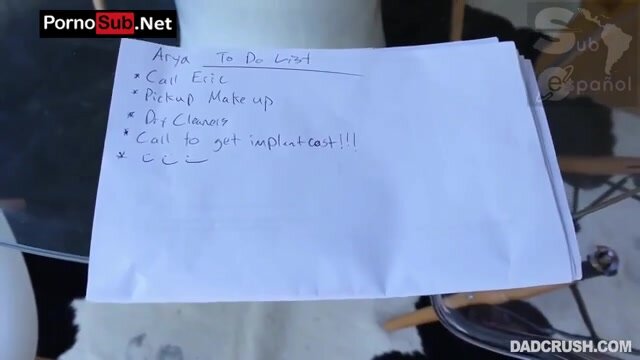 PornoSub.Net
Sub
Español
Arya To Do List
* Call Eric
* Pickup Make up
* Dry Cleaners
* Call to get implant cost!!!
*
DADCRUSH.COM